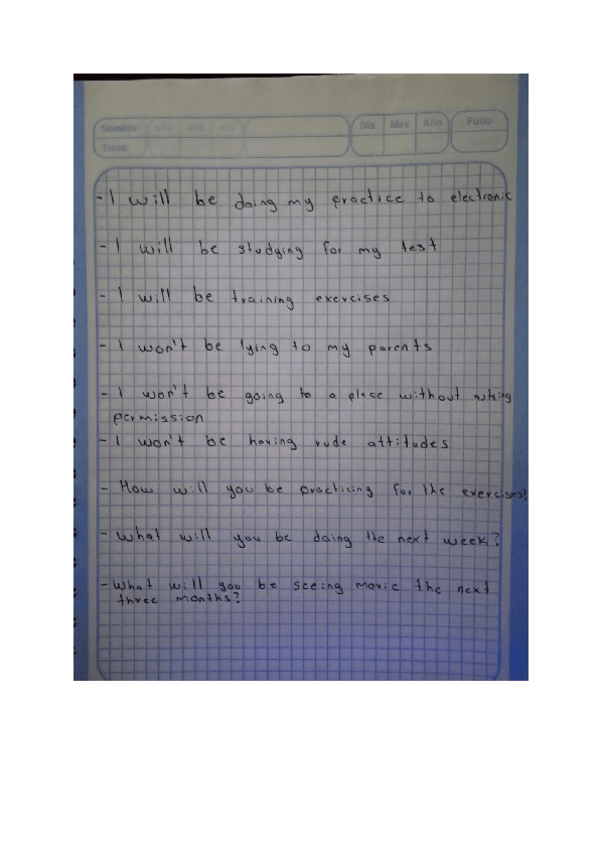 Nombre: Día Mes Año Folio
Tema:
- I will be doing my practice to electronic
- I will be studying for my test
- I will be training exercises
- I won't be lying to my parents
- I won't be going to a place without asking
permission
- I won't be having rude attitudes
- How will you be practicing for the exercises?
- What will you be doing the next week?
- What will you be seeing movie the next
three months?